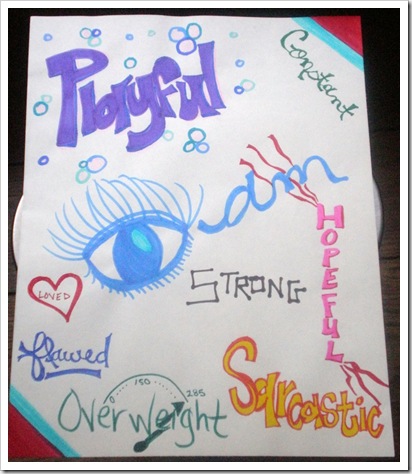 Playful
Constant
am
HOPEFUL
STRONG
LOVED
flawed
Sarcastic
0 150 285
Overweight